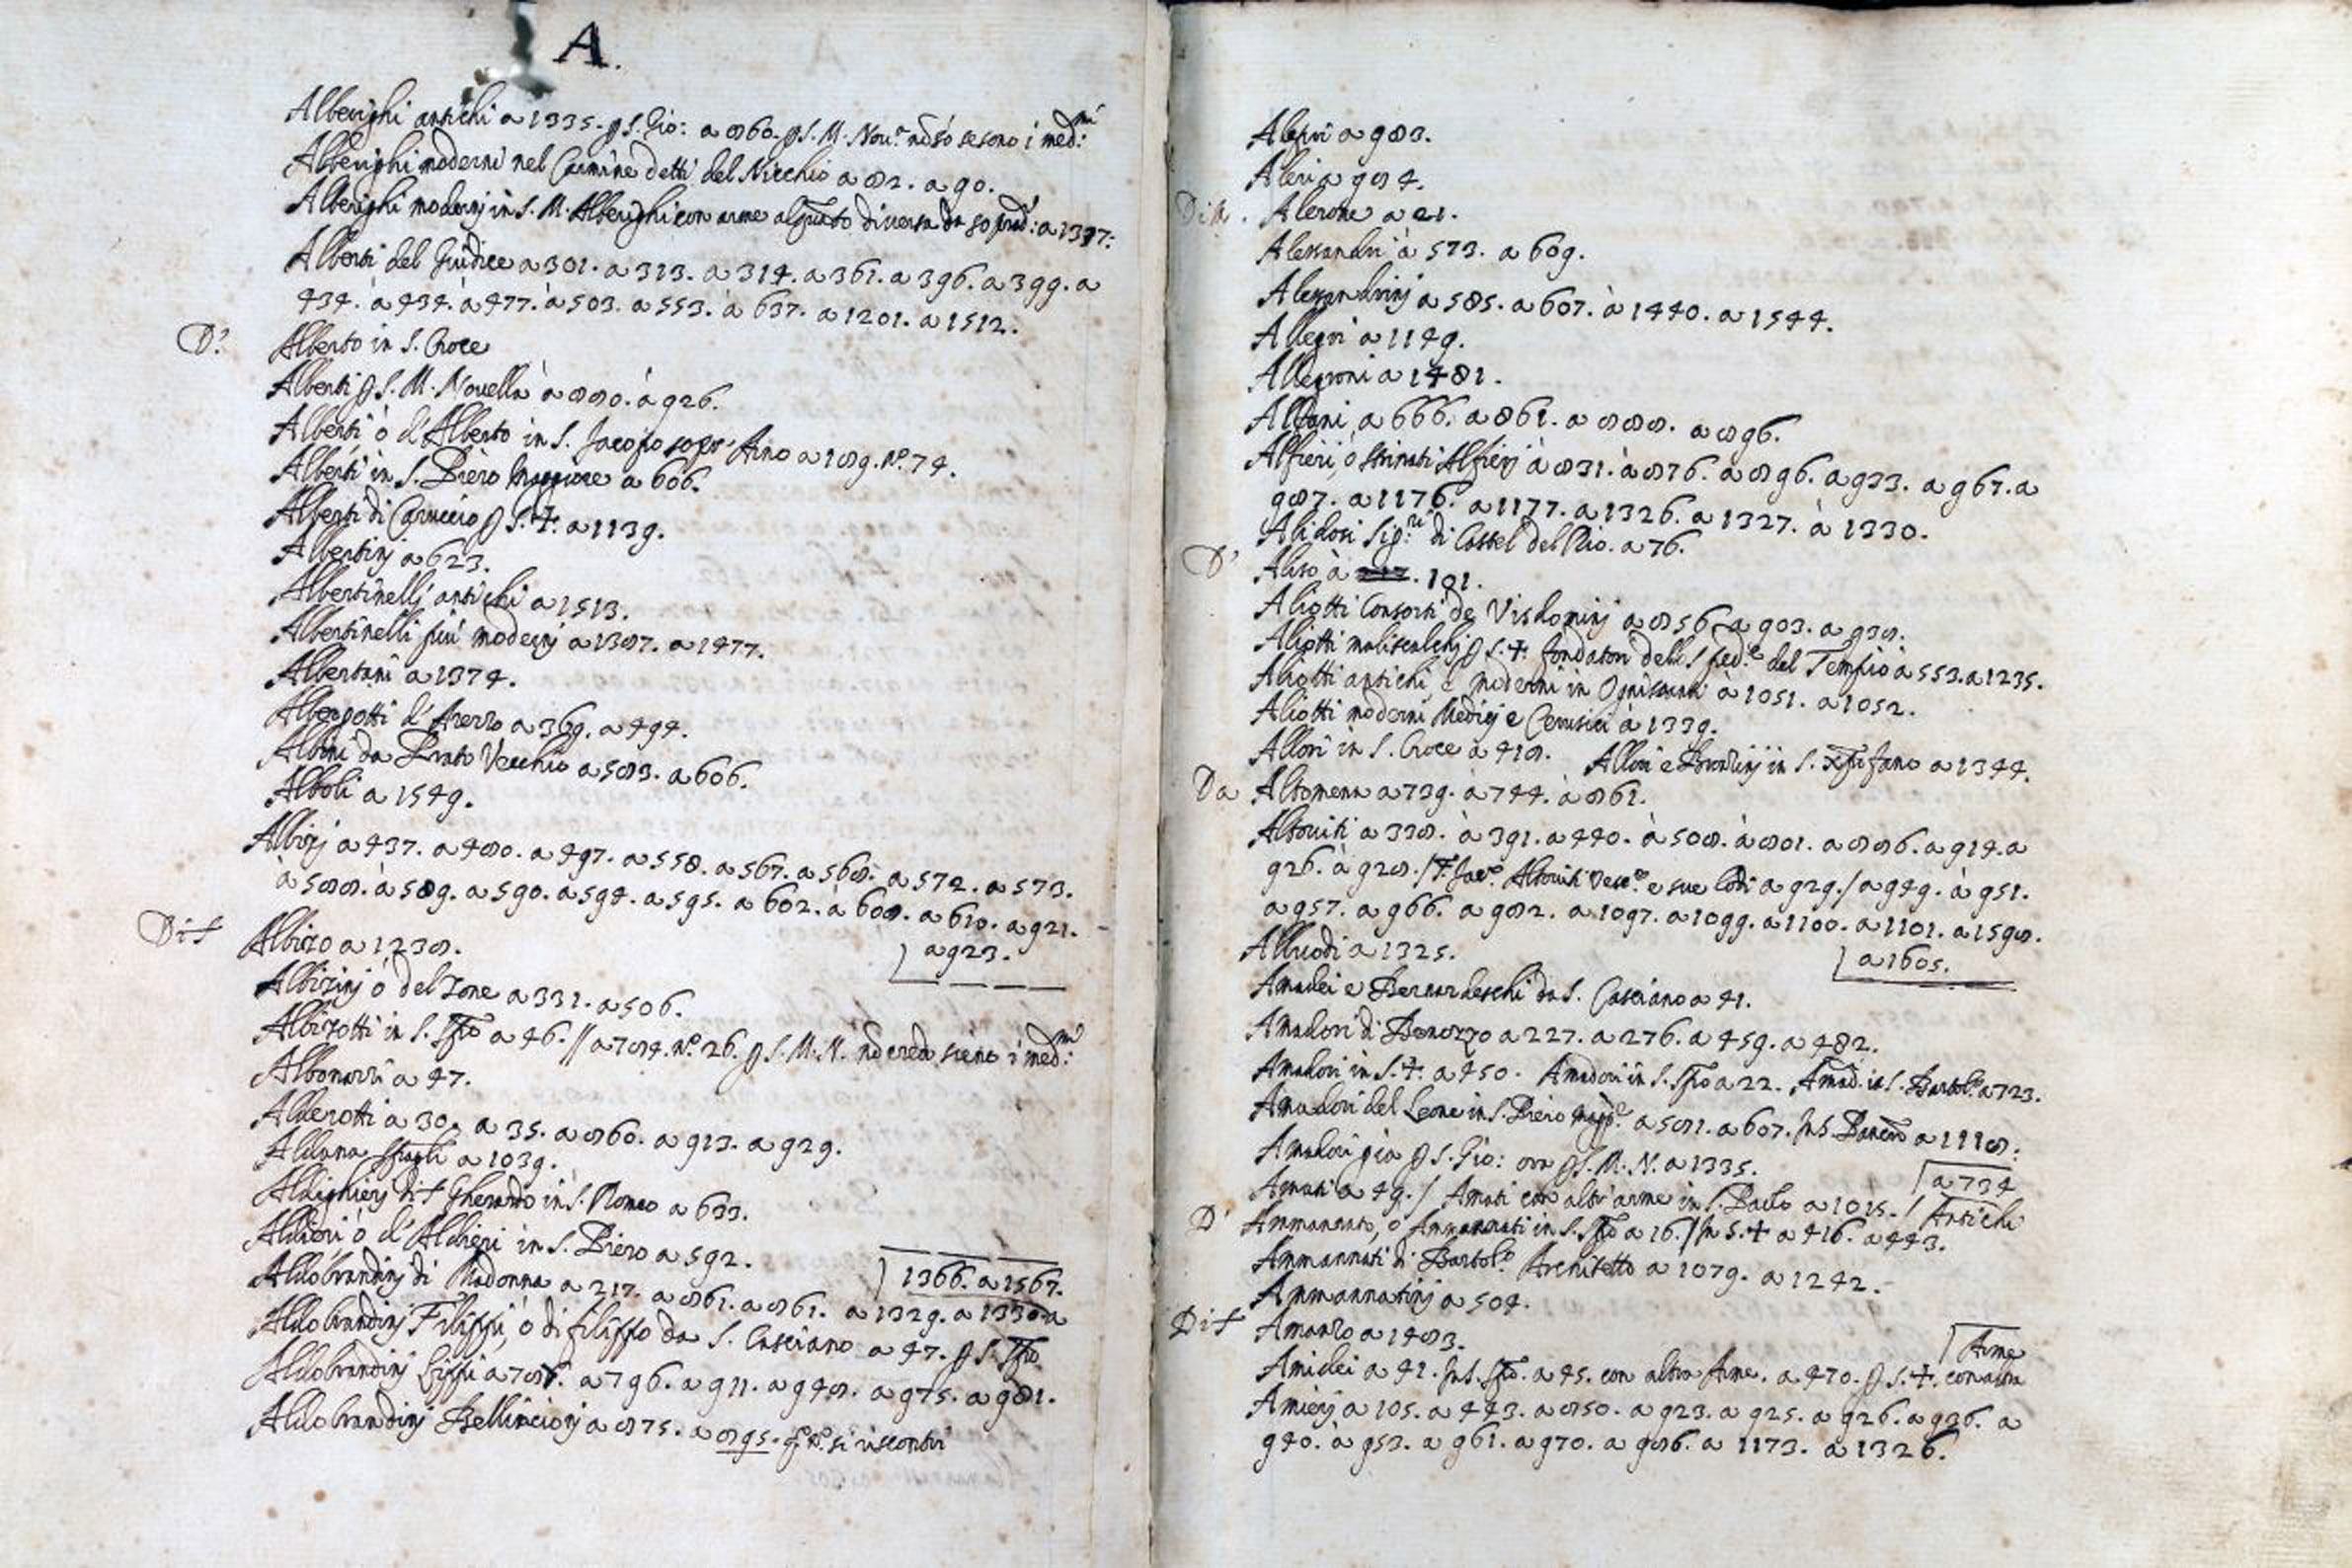 A.
Alberighi antichi a 1335. p S. Gio: a 860. p S. M. Nou.ª nō só se sono i med:mi
Alberighi moderni nel Carmine detti del Nicchio a 82. a 90.
Alberighi modernj in S. M. Alberighi con arme alquato diuersa da soprad:i a 1337:
Alberti del Giudice a 301. a 313. a 314. a 361. a 396. a 399. a
434. à 434. à 477. à 503. a 553. à 637. a 1201. a 1512.
D' Alberto in S. Croce
Alberti p S. M. Nouella à 880. à 926.
Alberti ò d'Alberto in S. Jacopo sopr' Arno a 189. nº. 74.
Alberti in S. Piero Maggiore a 606.
Alberti di Caruccio p S. ✝. a 1139.
Albertinj a 623.
Albertinellj antichi a 1513.
Albertinelli piu' modernj a 1387. a 1477.
Albertani a 1374.
Albergotti d'Arezzo a 369. a 494.
Albini da Prato Vecchio a 583. a 606.
Alboli a 1549.
Albizj a 437. a 480. a 497. a 558. a 567. a 568. a 572. a 573.
à 588. à 589. a 590. a 594. a 595. a 602. à 608. a 610. a 921.
a 923.
Di ✝ Albizo a 1238.
Albizinj ò del Zone a 331. a 506.
Albizotti in S. Spto a 46. // a 784. nº. 26. p S. M. N. nō credo sieno i med:mi
Albonarri a 47.
Alderotti a 30. a 35. a 860. a 913. a 929.
Aldana a 1039.
Aldighierj di ✝ Gherardo in S. Romeo a 633.
Aldieri ò d'Aldieri in S. Piero a 592.
1366. a 1567.
Aldobrandinj di Madonna a 217. a 861. a 861. a 1329. a 1330 a
Aldobrandinj Filippi, ò di filippo da S. Casciano a 47. p S. Spto
Aldobrandinj Lippi a 787. a 796. a 911. a 948. a 975. a 981.
Aldobrandinj Bellincionj a 875. a 895. si riscontri
Alepri a 983.
Aleri a 984.
Di Alerone a 21.
Alessandri à 573. a 609.
Alessandrinj a 585. a 607. à 1440. a 1544.
Allegri a 1149.
Allegroni a 1481.
Alfani a 666. a 861. a 888. a 896.
Alfieri, ò Strinati Alfierj à 831. à 876. à 896. a 933. a 967. a
987. a 1176. a 1177. a 1326. a 1327. à 1330.
Alidosi Sig.ri di Castel del Rio. a 76.
D' Aliso à 101.
Aliotti Consorti de Visdominj a 856. a 903. a 938.
Aliotti maliscalchj p S. ✝. fondatori dello Sped.e del Tempio à 553. a 1235.
Aliotti antichi, e moderni in Ognisanti à 1051. a 1052.
Aliotti moderni Medicj e Cerusici à 1339.
Allori in S. Croce a 418. Allori e Bronzinj in S. Xpofano a 1344.
Da Altomena a 739. à 744. à 861.
Altouiti a 338. à 391. a 440. à 508. à 801. a 886. a 914. a
926. à 928. / Altouiti Vesc.º e sue Lodi a 929. / a 949. à 951.
a 957. a 966. a 982. a 1097. a 1099. a 1100. a 1101. a 1598.
Alluodi a 1325.
a 1605.
Amadei e Bernardeschi da S. Casciano a 41.
Amadori di Benozzo a 227. a 276. a 459. a 482.
Amadori in S. ✝. a 450. Amadori in S. Spto a 22. Amad. in S. Bartol.º a 723.
Amadori del Leone in S. Piero Magg.e a 581. a 607. In S. Pancro a 1118:
Amadori già p S. Gio: ora p S. M. N. a 1335.
a 734
Amati a 49. / Amati con altr'arme in S. Paolo a 1015. / Antichi
D' Ammannato, o Ammannati in S. Spto a 16. / In S. ✝ a 416. a 443.
Ammannati di Bartol.º Architetto a 1079. a 1242.
Ammannatinj a 504.
Di ✝ Amanzo a 1483.
Arme
Amidei a 41. In S. Spto. a 45. con altra Arme. a 470. p S. ✝. con altra
Amierj a 105. a 443. a 850. a 923. a 925. a 926. a 936. a
940. à 953. a 961. a 970. a 986. a 1173. a 1326.